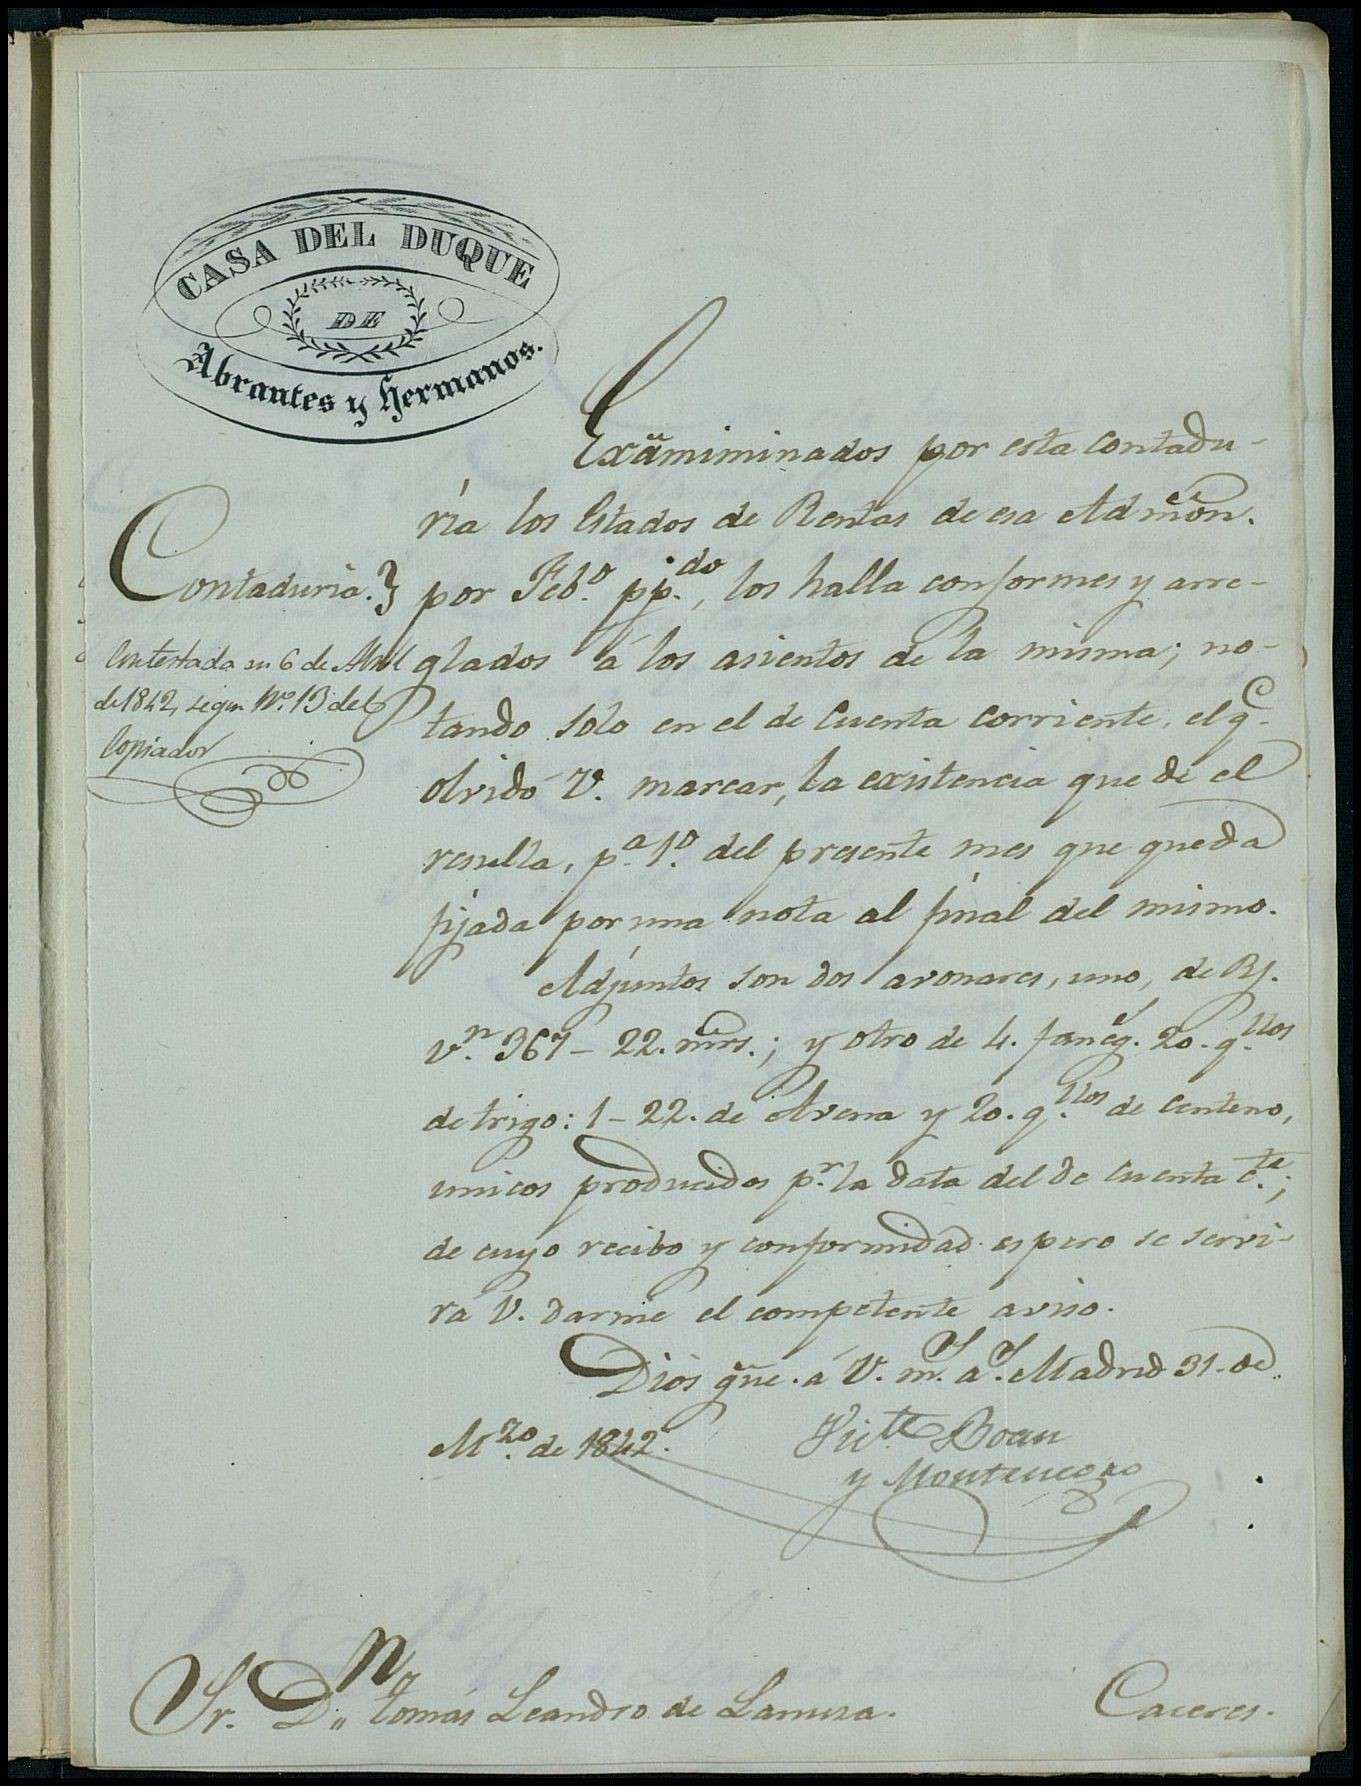 CASA DEL DUQUE
DE
Abrantes y Hermanos.
Examiminados por esta contadu-
ría los Estados de Rentas de esa Admon.
Contaduria.
por Feb.o pp.do, los halla conformes y arre-
Contestada en 6 de Abril
de 1842, segun No. 13 del
Copiador
glados á los asientos de la misma; no-
tando solo en el de Cuenta corriente, el q.e
olvidó V. marcar, la existencia que de el
resulta, p.a 1.o del presente mes que queda
fijada por una nota al final del mismo.
Adjuntos son dos avonares, uno, de Rs.
v.n 367-22. mrs.; y otro de 4. faneg.s 20. q.llos
de trigo: 1-22. de Avena y 20. q.llos de centeno,
unicos producidos p.r la data del de cuenta c.te;
de cuyo recibo y conformidad espero se servi-
rá V. darme el competente aviso.
Dios gue. á V. m.s a.s Madrid 31 de
M.zo de 1842.
Vic.te Boan
y Montenegro
Sr. D.n Tomás Leandro de Lanuza.
Caceres.